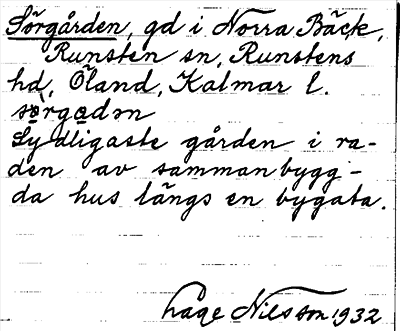 Sörgården, gd i Norra Bäck,
Runsten sn, Runstens
hd, Öland, Kalmar l.
Sydligaste gården i ra-
den av sammanbygg-
da hus längs en bygata.
Åge Nilsson 1932